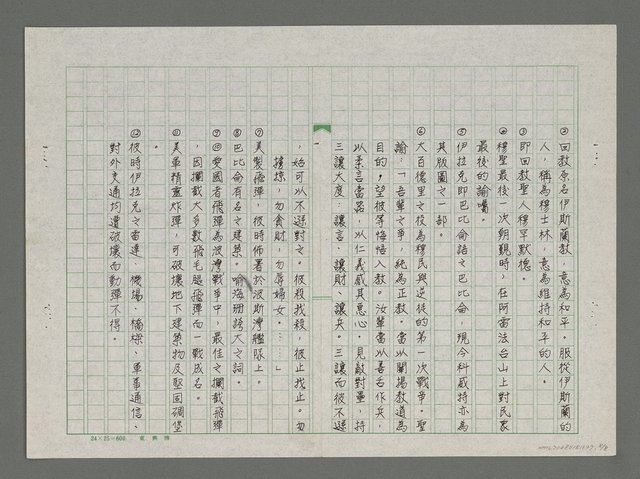 ②回教原名伊斯蘭教。意為和平。服從伊斯蘭的
人，稱為穆士林，意為維持和平的人。
③即回教聖人穆罕默德。
④穆聖最後一次朝覲時，在阿雷法台山上對民衆
最後的諭囑。
⑤伊拉克即巴比侖諸之巴比侖，現今科威特亦為
其版圖之一部。
⑥大百德里之役為穆民與逆徒的第一次戰爭。聖
諭：「吾輩之爭，純為正教。當以闡揚教道為
目的，望彼等悔悟入教。汝輩當以善否作兵，
以柔言當器，以仁義感其惡心。見敵對壘，持
三讓大度：讓言、讓財、讓兵。三讓而彼不遜
，始可以不遜對之。彼殺找殺，彼止找止。勿
擄掠，勿貪財，勿辱婦女。……」
⑦美製飛彈，彼時佈署於波斯灣艦隊上。
⑧巴比侖有名之建築。喻海珊誇大之詞。
⑩愛國者飛彈為波灣戰爭中，最佳之攔截飛彈
，因攔截大多數飛毛腿飛彈而一戰成名。
⑪美軍精靈炸彈，可破壞地下建築物及堅固碉堡
。
⑫彼時伊拉克之雷達、機場、橋樑、軍事通信、
對外交通均遭破壞而動彈不得。
24×25=600